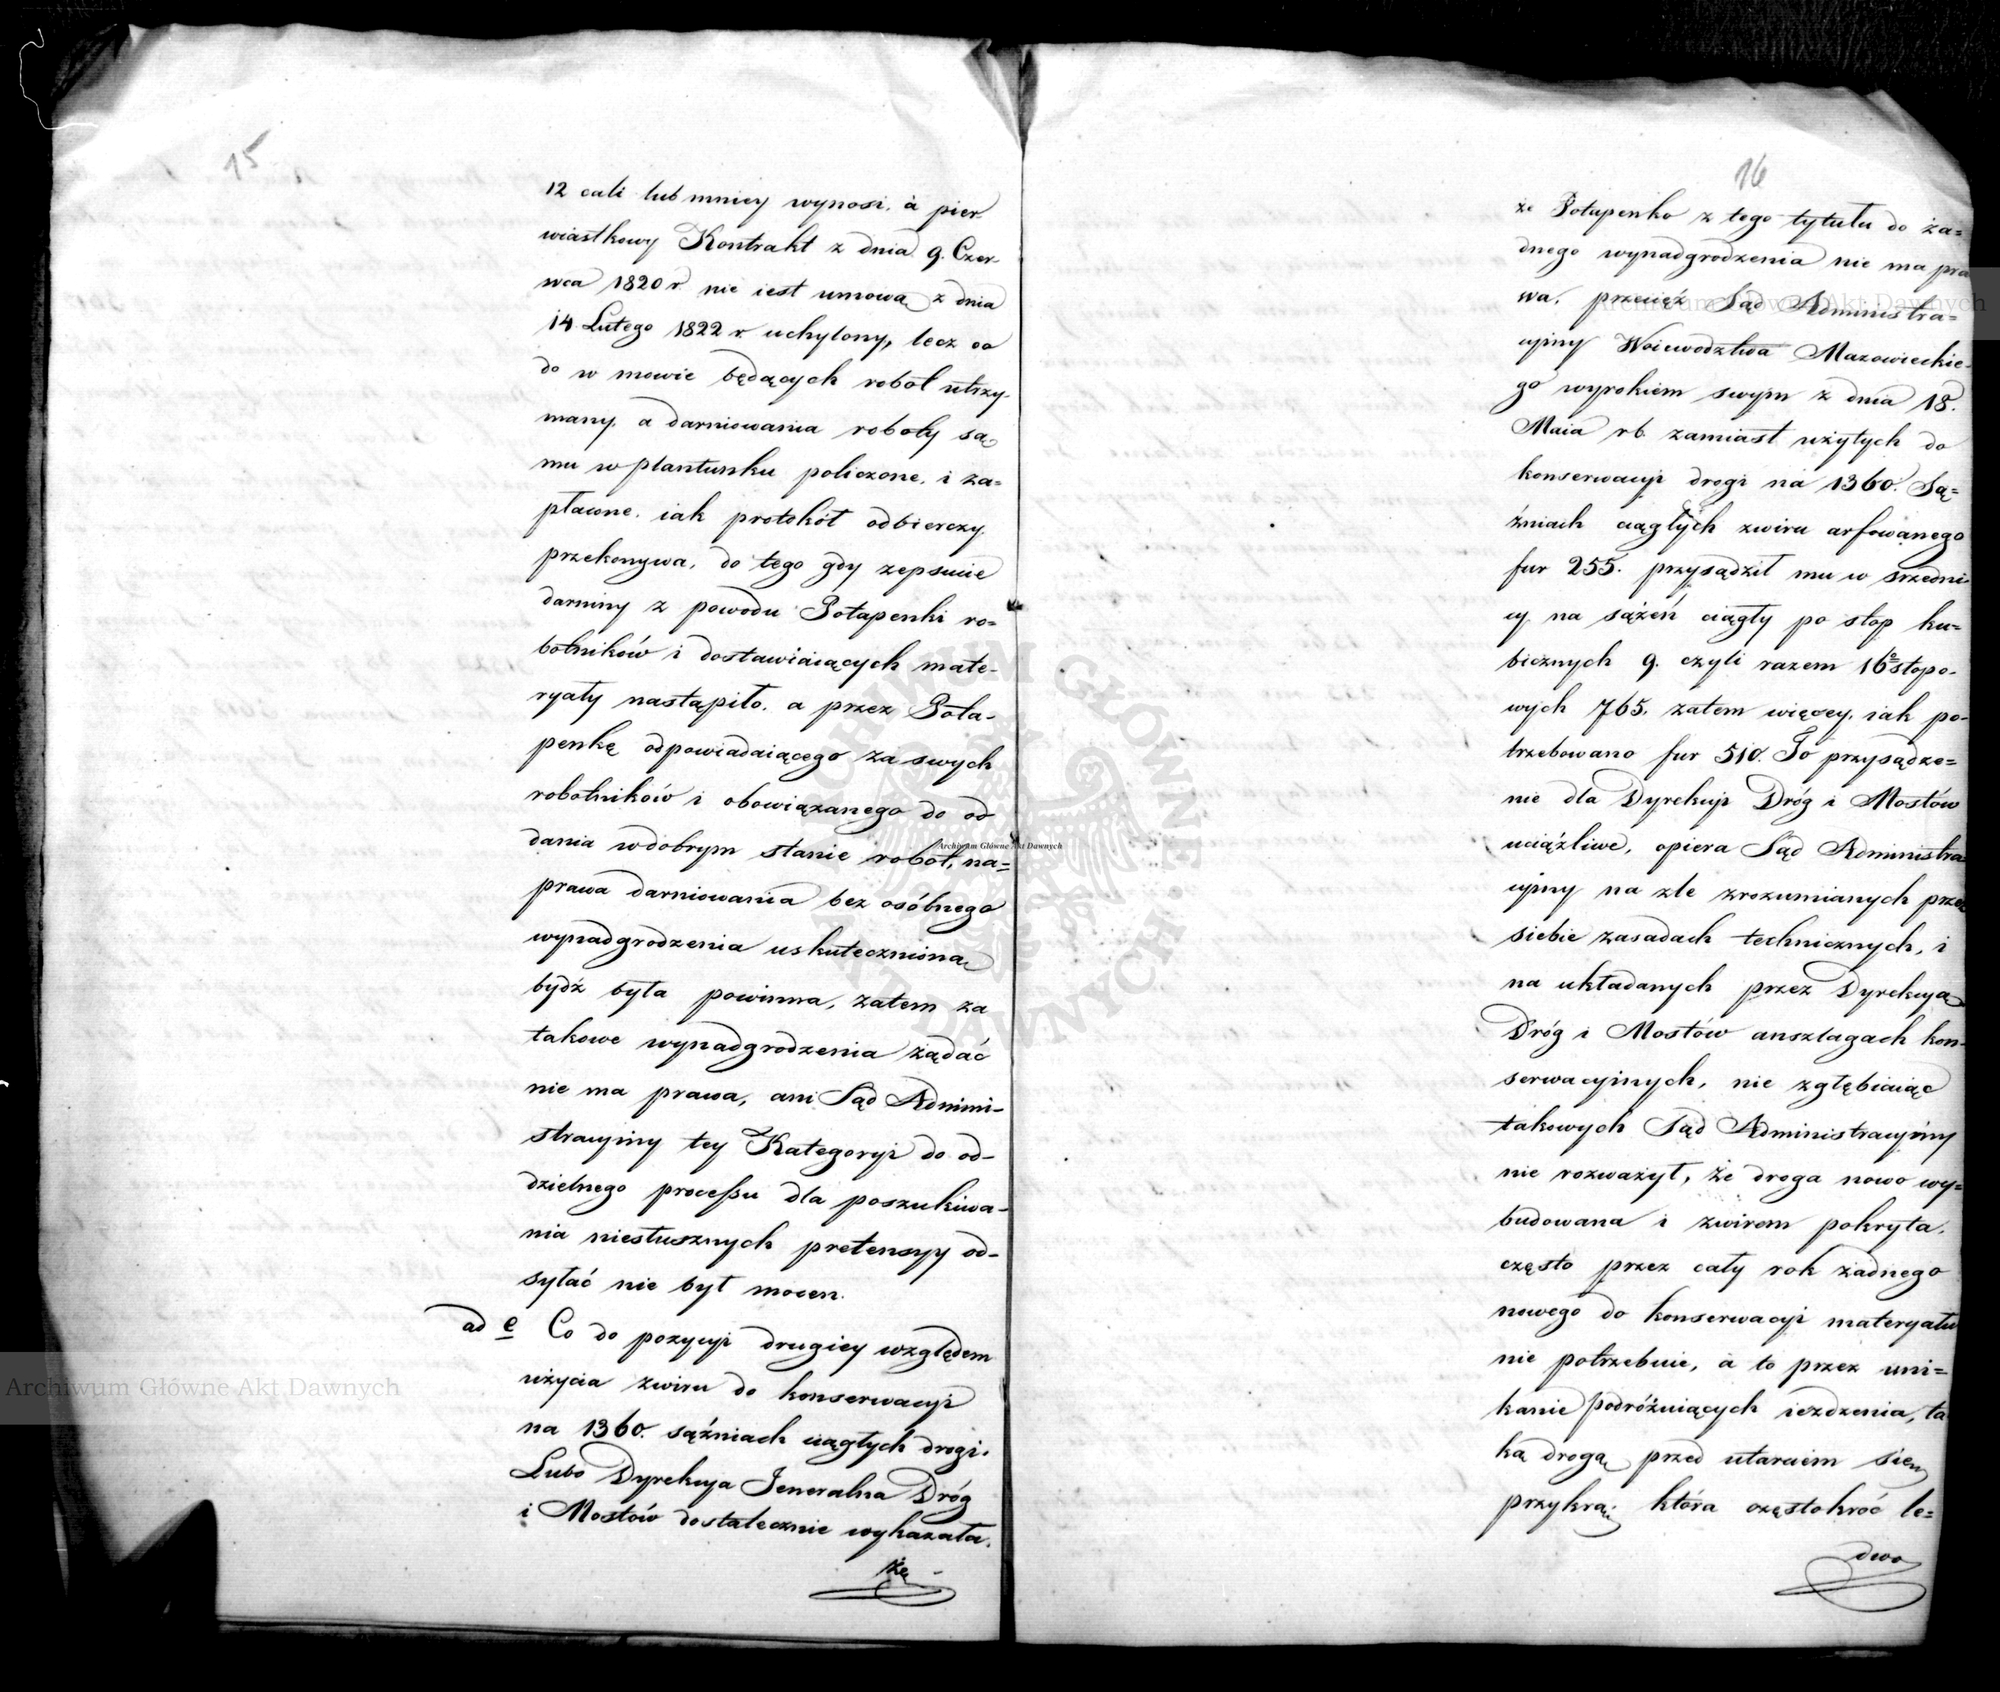 15
12 cali lub mniey wynosi. à pier-
wiastkowy Kontrakt z dnia 9. Czer-
wca 1820 r nie iest umową z dnia
14 Lutego 1822 r uchylony, lecz co
do w mowie będących robot utrzy-
many. a darniowania roboty są
mu w plantunku policzone. i za=
płacone. iak protokół odbierczy
przekonywa, do tego gdy zepsucie
darniny z powodu Potapenki ro=
botników i dostawiaiących mate-
ryały nastąpiło. a przez Pota-
penkę odpowiadaiącego za swych
robotników i obowiązanego do od
dania w dobrym stanie robot, na=
prawa darniowania bez osóbnego
wynadgrodzenia uskuteczniona
bydź była powinna, zatem za
takowe wynadgrodzenia żądać
nie ma prawa, ani Sąd Admini-
stracyiny tey Kategoryi do od-
dzielnego processu dla poszukiwa-
nia niesłusznych pretensyy od-
syłać nie był mocen.
ad e Co do pozycyi drugiey względem
użycia zwiru do konserwacyi
na 1360. sążniach ciągłych drogi.
Lubo Dyrekcya Jeneralna Dróg
i Mostów dostatecznie wykazała.
że
16
że Potapenko z tego tytułu do ża=
dnego wynadgrodzenia nie ma pra
wa, przecięż Sąd Administra=
cyiny Woiewodztwa Mazowieckie-
go wyrokiem swym z dnia 18.
Maia rb. zamiast użytych do
konserwacyi drogi na 1360. Są=
żniach ciągłych zwiru arfowanego
fur 255. przysądził mu w srzedni
cy na sążeń ciągły po stop ku=
bicznych 9. czyli razem 16 stopo-
wych 765. zatem więcey. iak po-
trzebowano fur 510. To przysądze=
nie dla Dyrekcyi Dróg i Mostów
uciążliwe, opiera Sąd Administra
cyiny na zle zrozumianych przez
siebie zasadach technicznych, i
na układanych przez Dyrekcyą
Dróg i Mostów anszlagach kon-
serwacyinych, nie zgłębiaiąc
takowych Sąd Administracyiny
nie rozważył, że droga nowo wy=
budowana i zwirem pokryta.
często przez cały rok żadnego
nowego do konserwacyi materyału
nie potrzebuie, à to przez uni=
kanie podróżuiących ieżdzenia, ta
ką drogą przed utarciem się
przykrą; która częstokroć le=
dwo
Archiwum Główne Akt Dawnych
Archiwum Główne Akt Dawnych
Archiwum Główne Akt Dawnych
ARCHIWUM GŁÓWNE AKT DAWNYCH